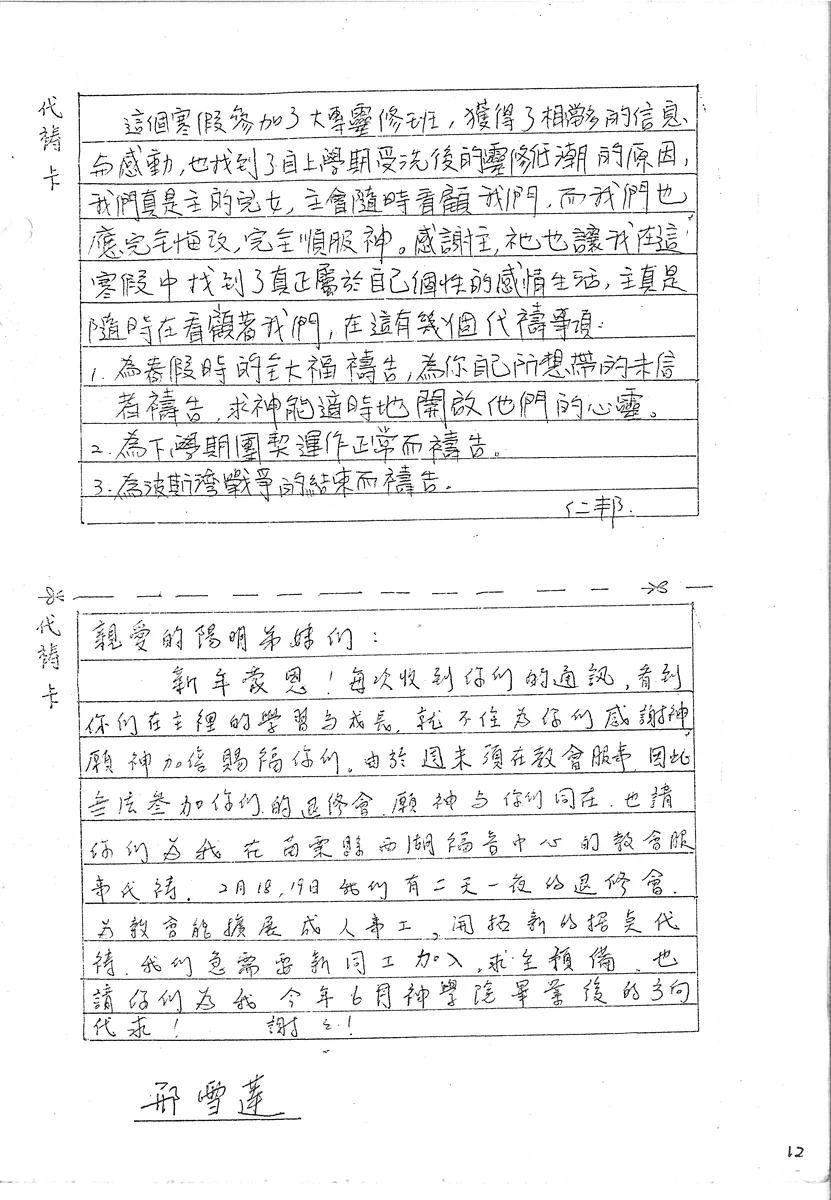 代禱卡
這個寒假參加了大專靈修班，獲得了相當多的信息
與感動，也找到了自上學期受洗後的靈修低潮的原因，
我們真是主的兒女，主會隨時看顧我們，而我們也
應完全悔改，完全順服神。感謝主，祂也讓我在這
寒假中找到了真正屬於自己個性的感情生活，主真是
隨時在看顧著我們，在這有幾個代禱事項：
1. 為春假時的全大福禱告，為你自己所想帶的未信
者禱告，求神能適時地開啟他們的心靈。
2. 為下學期團契運作正常而禱告。
3. 為波斯灣戰爭的結束而禱告。
仁邦.
代禱卡
親愛的陽明弟妹们：
新年蒙恩！每次收到你们的通訊，看到
你们在主裡的學習与成長，就不住為你们感謝神，
願神加倍賜福你们。由於週末須在教會服事，因此
無法參加你们的退修會，願神与你们同在，也請
你们為我在苗栗縣西湖福音中心的教會服
事代祷，2月18,19日我们有二天一夜的退修會，
为教會能擴展成人事工，開拓新的據點代
祷，我们急需要新同工加入，求主預備，也
請你们為我今年6月神學院畢業後的方向
代求！ 謝々！
邢雪蓮
12